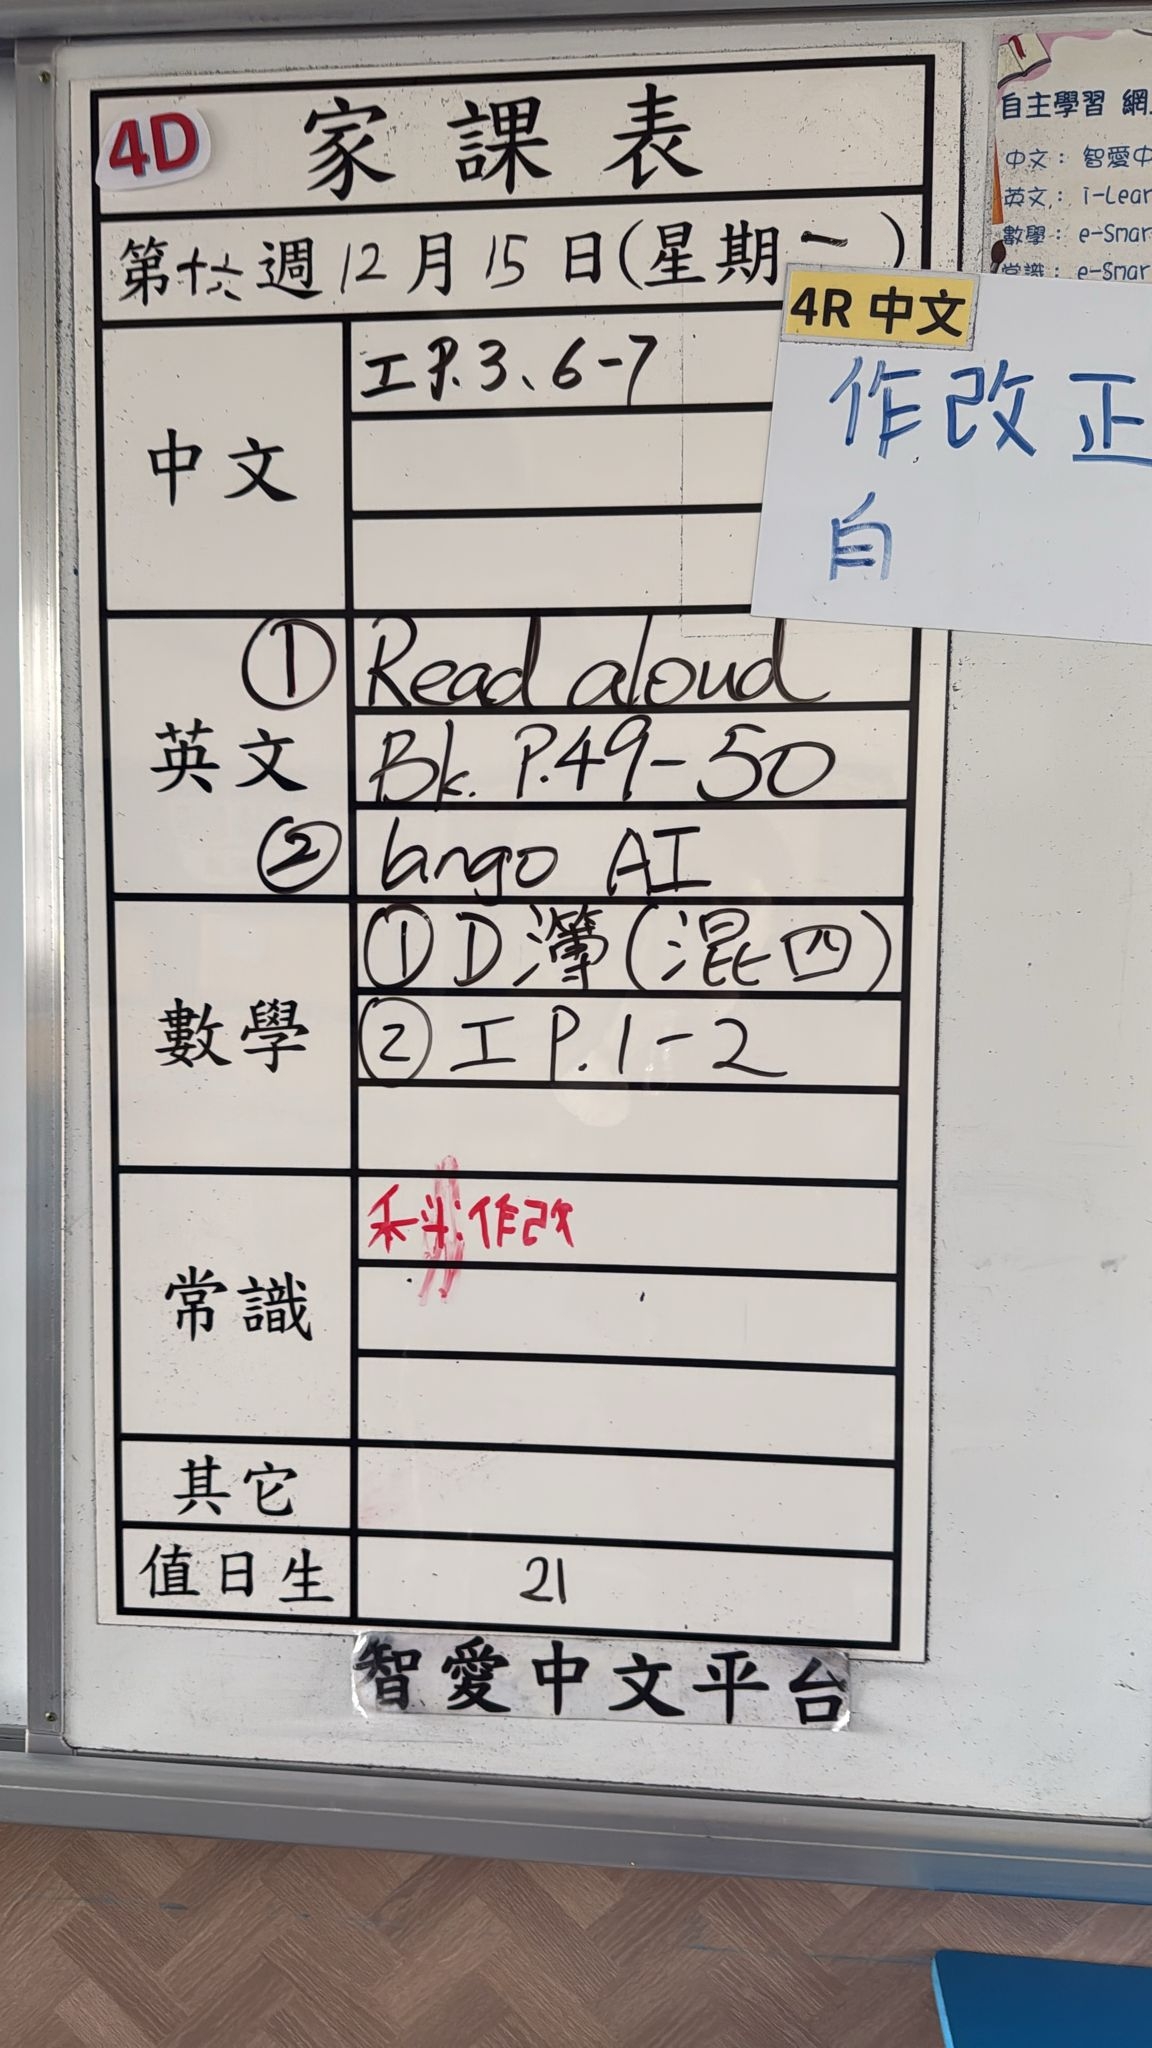 4D 家課表
第十六週12月15日(星期一)
中文
工P.3、6-7
英文
① Read aloud
Bk. P.49-50
② lango AI
數學
①D簿(混四)
②工P.1-2
常識
作改
其它
值日生
21
智愛中文平台
4R 中文
作改正
自
自主學習 網
中文：智愛中
英文：i-Lear
數學：e-Smar
常識：e-Smar